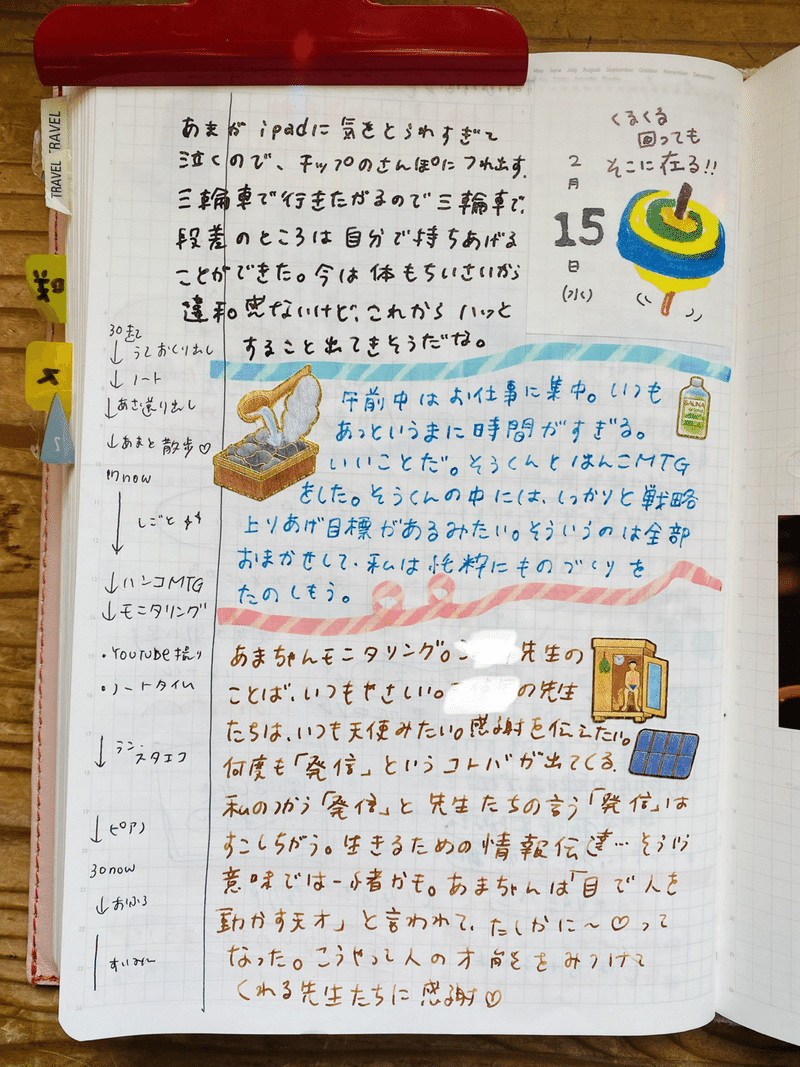 May June July August September October November December
TRAVEL TRAVEL
くるくる
回っても
そこに在る!!
2
月
15
日
(水)
あまが ipadに 気をとられすぎて
泣くので、チップのさんぽにつれ出す。
三輪車で行きたがるので三輪車で、
段差のところは自分で持ちあげる
ことができた。今は体もちいさいから
違和感ないけど、これから ハッと
すること出てきそうだな。
午前中はお仕事に集中。いつも
あっというまに時間がすぎる。
いいことだ。そうくんとはんこMTG
をした。そうくんの中には、しっかりと戦略
上りあげ目標があるみたい。そういうのは全部
おまかせして、私は純粋にものづくりを
たのしもう。
SAUNA
あまちゃんモニタリング。先生の
ことば、いつもやさしい。の先生
たちは、いつも天使みたい。感謝を伝えたい。
何度も「発信」というコトバが出てくる。
私のつかう「発信」と先生たちの言う「発信」は
すこしちがう。生きるための情報伝達…そういう
意味では一緒かも。あまちゃんは「目で人を
動かす天才」と言われて、たしかに〜♡って
なった。こうやって人の才能をみつけて
くれる先生たちに感謝♡
30起
↓うたおくり出し
↓ノート
↓あさ送り出し
↓あまと散歩♡
now
↓しごと
↓ハンコMTG
↓モニタリング
・YOUTUBE撮り
・ノートタイム
↓ラン、
スタエフ
↓ピアノ
30now
↓おふろ
すいみん